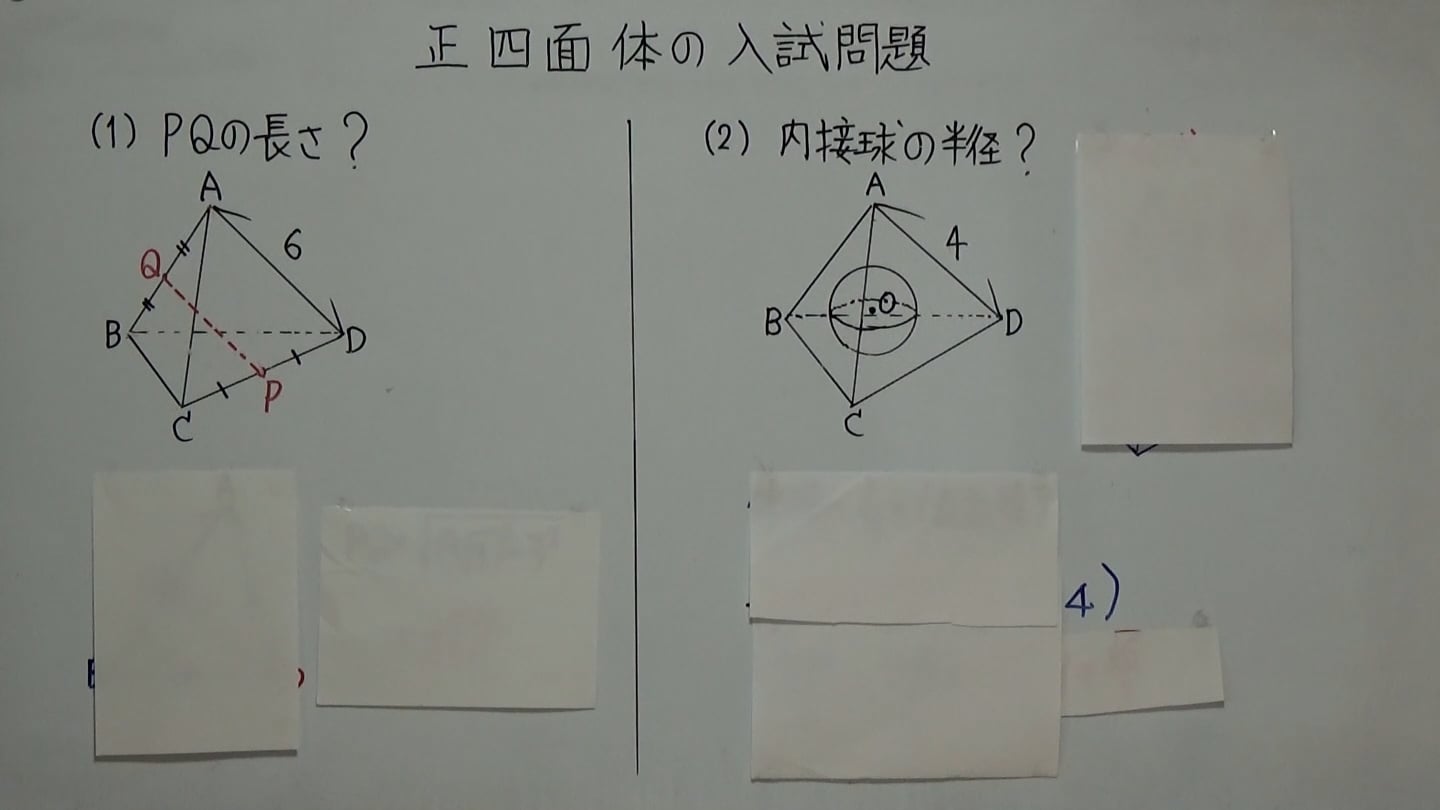 正四面体の入試問題
(1) PQの長さ?
A
6
Q
B
D
P
C
(2) 内接球の半径?
A
4
O
B
D
C
4)